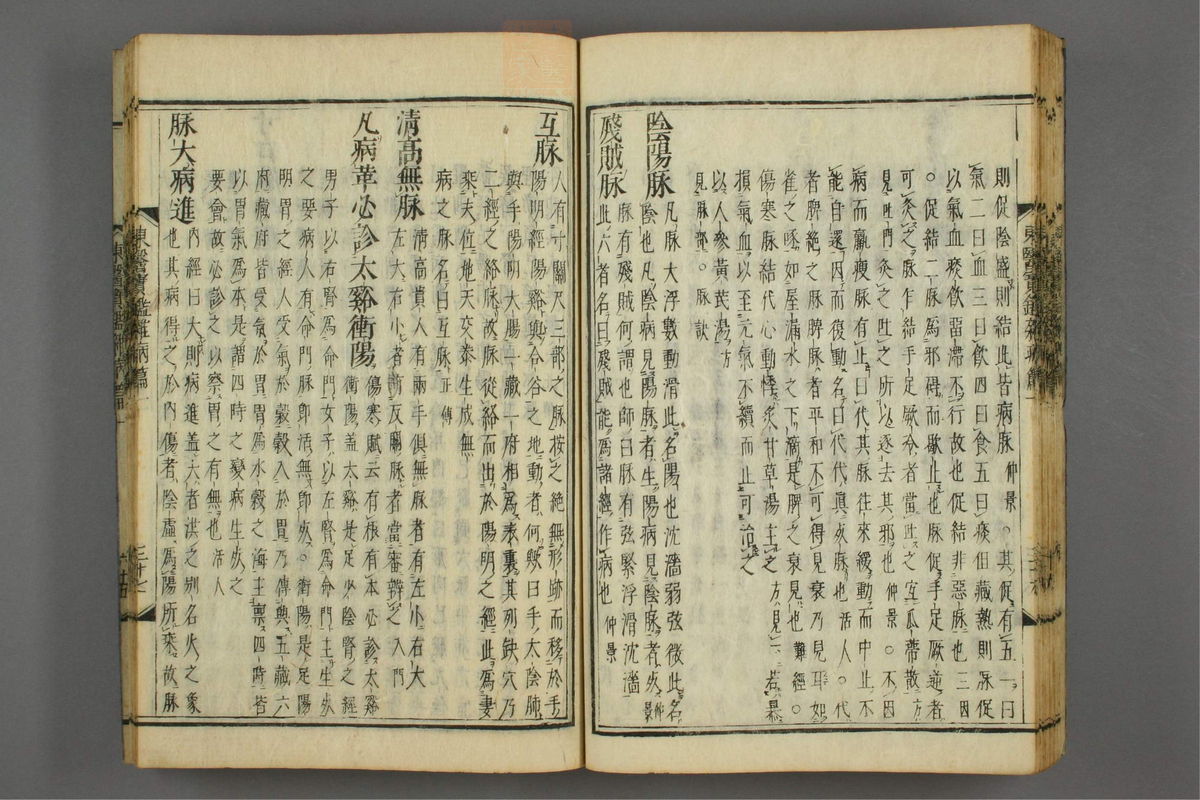 則促陰盛則結此皆病脉仲景○其促有五一曰
氣二曰血三曰飮四曰食五曰痰但藏熱則脉促
以氣血痰飮留滯不行故也促結非惡脉也三因
○促結二脉爲邪碍而歇止也脉促手足厥逆者
可灸之脉乍結手足厥冷者當吐之宜瓜蒂散方
見吐門灸之吐之所以逐去其邪也仲景○不因
病而羸瘦脉有止曰代其脉往來緩動而中止不
能自還因而復動名曰代代眞死脉也活人○代
者脾絶之脉脾脉者平和不可得見衰乃見耳如
雀之啄如屋漏水之下滴是脾之衰見也難經○
傷寒脉結代心動悸炙甘草湯主之方見下若暴
損氣血以至元氣不續而止可治之
以人參黃芪湯方
見脉部○脉訣
陰陽脉
凡脉大浮數動滑此名陽也沈濇弱弦微此名
陰也凡陰病見陽脉者生陽病見陰脉者死仲景
殘賊脉
脉有殘賊何謂也師曰脉有弦緊浮滑沈濇
此六者名曰殘賊能爲諸經作病也仲景
互脉
人有寸關尺三部之脉按之絶無形跡而移於手
陽明經陽谿與合谷之地動者何歟曰手太陰肺
與手陽明大腸一藏一府相爲表裏其列缺穴乃
二經之絡脉故脉從絡而出於陽明之經此爲妻
乘夫位地天交泰生成無
病之脉名曰互脉正傳
淸高無脉
淸高貴人有兩手俱無脉者有左小右大
左大右小者有反關脉者當審辨之入門
凡病革必診太谿衝陽
傷寒賦云有根有本必診太谿
衝陽盖太谿是足少陰腎之經
男子以右腎爲命門女子以左腎爲命門主生死
之要病人有命門脉卽活無卽死○衝陽是足陽
明胃之經人受氣於穀穀入於胃乃傳與五藏六
府藏府皆受氣於胃胃爲水穀之海主稟四時皆
以胃氣爲本是謂四時之變病生死之
要會故必診之以察胃之有無也活人
脉大病進
內經曰大則病進盖大者洪之別名火之象
也其病得之於內傷者陰虛爲陽所乘故脉
東醫寶鑑雜病篇一